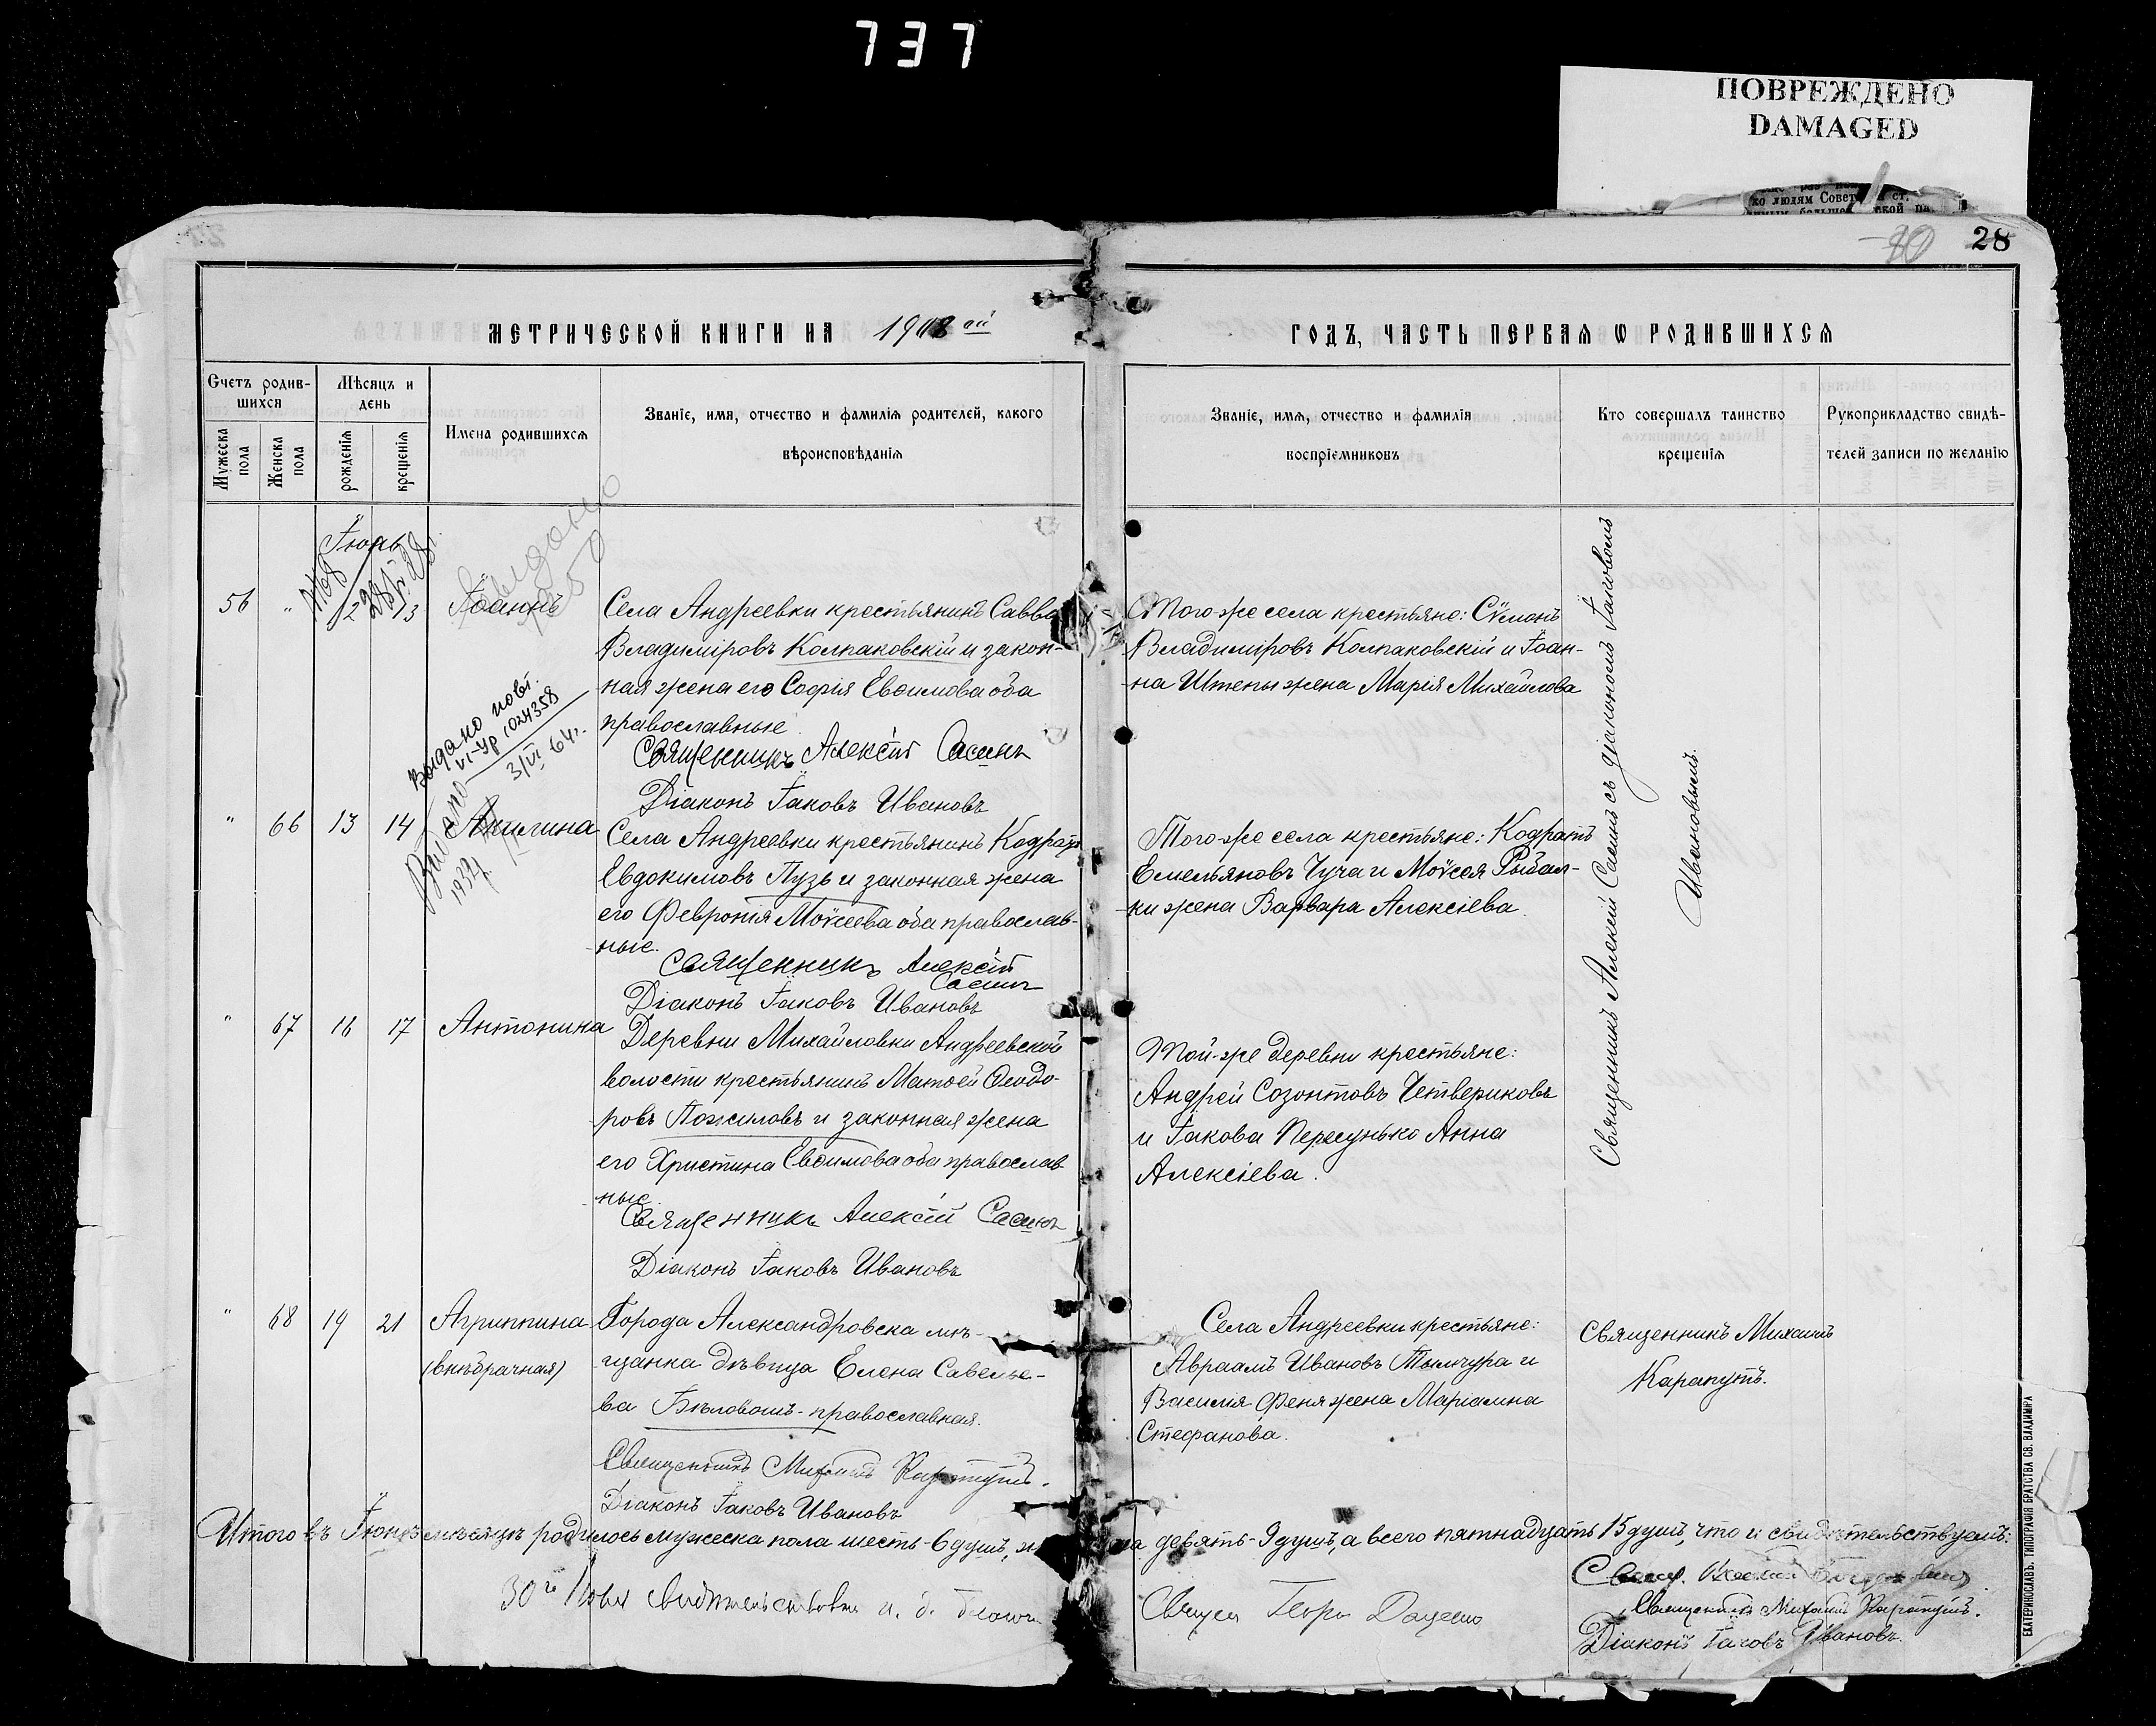 737
ПОВРЕЖДЕНО
DAMAGED
ко людям Совет
28
МЕТРИЧЕСКОЙ КНИГИ НА 1908 ой
ГОДЪ, ЧАСТЬ ПЕРВАЯ Ѡ РОДИВШИХСЯ
Счетъ родив-
шихся
Мѣсяцъ и
день
Имена родившихся
Званіе, имя, отчество и фамилія родителей, какого
вѣроисповѣданія
Мужеска
пола
Женска
пола
рожденія
крещенія
Званіе, имя, отчество и фамилія
воспріемниковъ
Кто совершалъ таинство
крещенія
Рукоприкладство свидѣ-
телей записи по желанію
56 " 12 13 Іоаннъ
Села Андреевки крестьянинъ Савва
Владиміровъ Колпаковскій и закон-
ная жена его Софія Евѳимова оба
православные.
Священникъ Алексій Сасинъ
Діаконъ Іаковъ Ивановъ
Того-же села крестьяне: Сѵмонъ
Владиміровъ Колпаковскій и Іоан-
-на Штепы жена Марія Михаилова
Выдано повт.
VI-УР 1024358
3/VI 64г.
Выдано
" 66 13 14 Акилина
Села Андреевки крестьянинъ Кодратъ
Евдокимовъ Пузь и законная жена
его Февронія Моѵсеева оба православ-
ные.
Священникъ Алексій
Сасинъ
Діаконъ Іаковъ Ивановъ
Того-же села крестьяне: Кодратъ
Емельяновъ Чуча и Моѵсея Рыбал-
-ки жена Варвара Алексіева.
" 67 16 17 Антонина
Деревни Михайловки Андреевской
волости крестьянинъ Матѳей Ѳеодо-
ровъ Пожиловъ и законная жена
его Христина Евѳимова оба православ
ные.
Священникъ Алексій Сасинъ
Діаконъ Іаковъ Ивановъ
Той-же деревни крестьяне:
Андрей Созонтовъ Четвериковъ
и Іакова Пересунько Анна
Алексіева.
Священникъ Алексій Сасинъ съ діакономъ Іаковомъ
Ивановымъ.
" 68 19 21 Агриппина
(внѣбрачная)
Города Александровска мѣ-
щанка дѣвица Елена Савелье-
ва Бѣловошъ - православная.
Священникъ Михаилъ Карапутъ.
Діаконъ Іаковъ Ивановъ
Села Андреевки крестьяне:
Авраамъ Ивановъ Тымчура и
Василія Феня жена Маріамна
Стефанова.
Священникъ Михаилъ
Карапутъ.
Итого въ Іюнѣ мѣсяцѣ родилось мужеска пола шесть - 6 душъ, на девять - 9 душъ, а всего пятнадцать 15 душъ, что и свидѣтельствуемъ:
Священникъ Михаилъ Карапутъ.
Діаконъ Іаковъ Ивановъ.
ЕКАТЕРИНОСЛАВЪ. ТИПОГРАФІЯ БРАТСТВА СВ. ВЛАДИМІРА